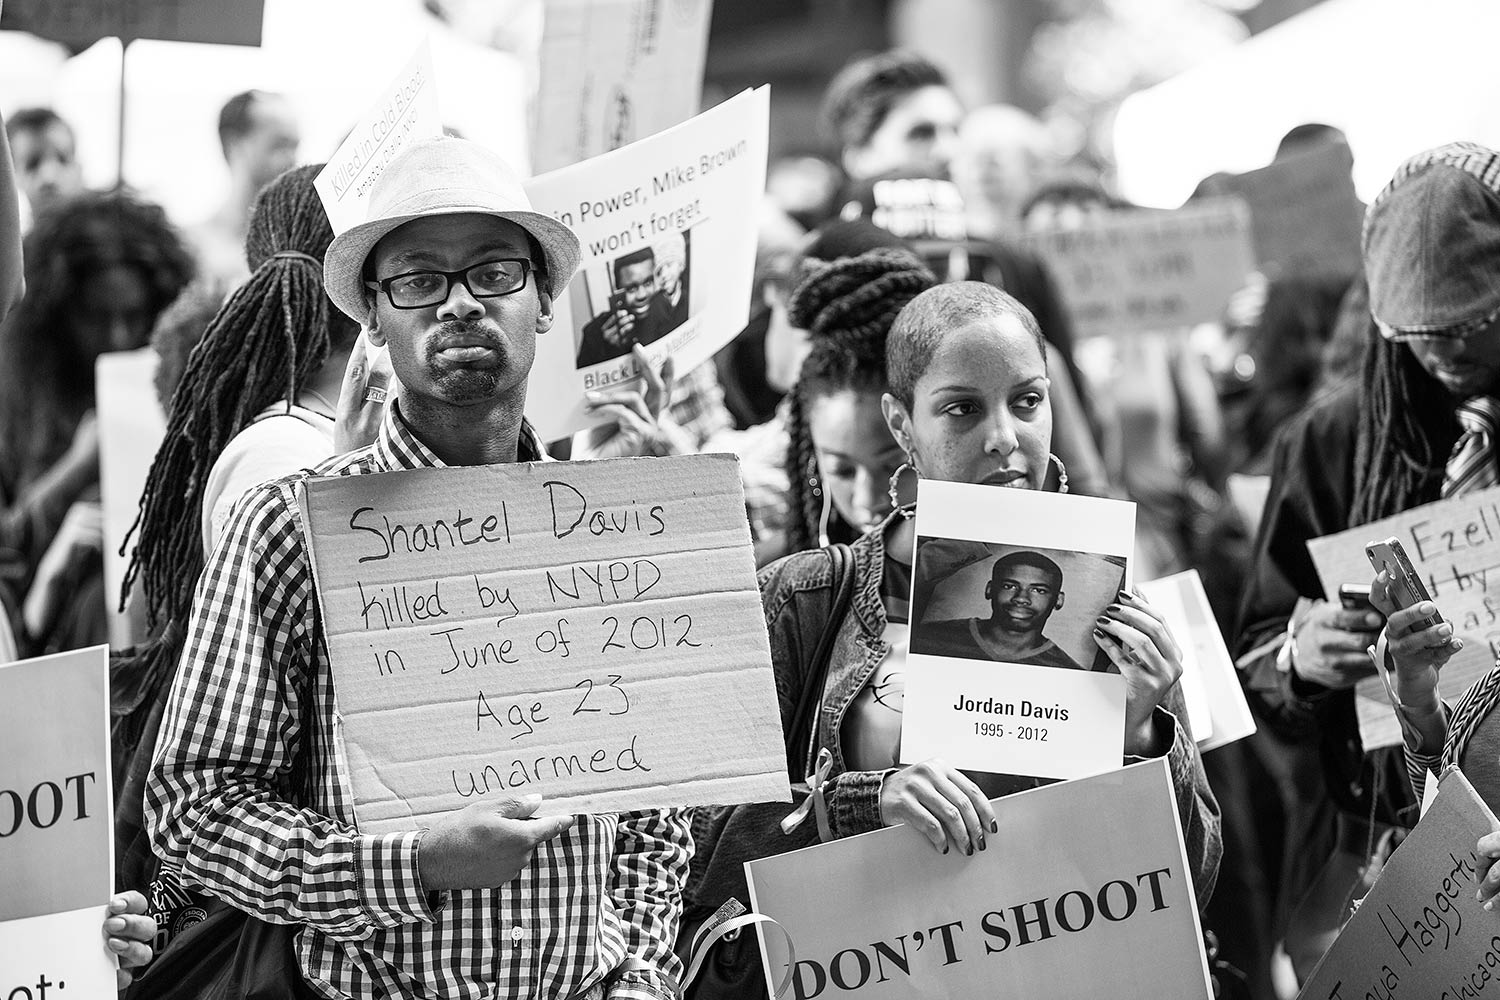 Killed in Cold Blood:
in Power, Mike Brown
won't forget
Black
Shantel Davis
killed by NYPD
in June of 2012.
Age 23
unarmed
Jordan Davis
1995 - 2012
DON'T SHOOT
OOT
ot.
Ezell
by
as
Haggerty